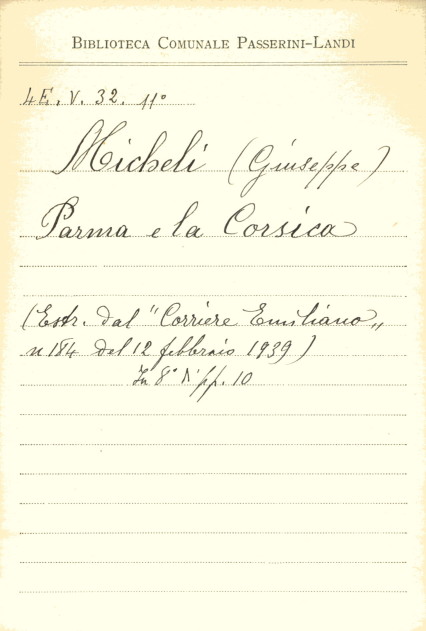 BIBLIOTECA COMUNALE PASSERINI-LANDI
4E. V. 32. 11°
Micheli (Giuseppe)
Parma e la Corsica
(Estr. dal "Corriere Emiliano„
n 184 del 12 febbraio 1939)
In 8° pp. 10